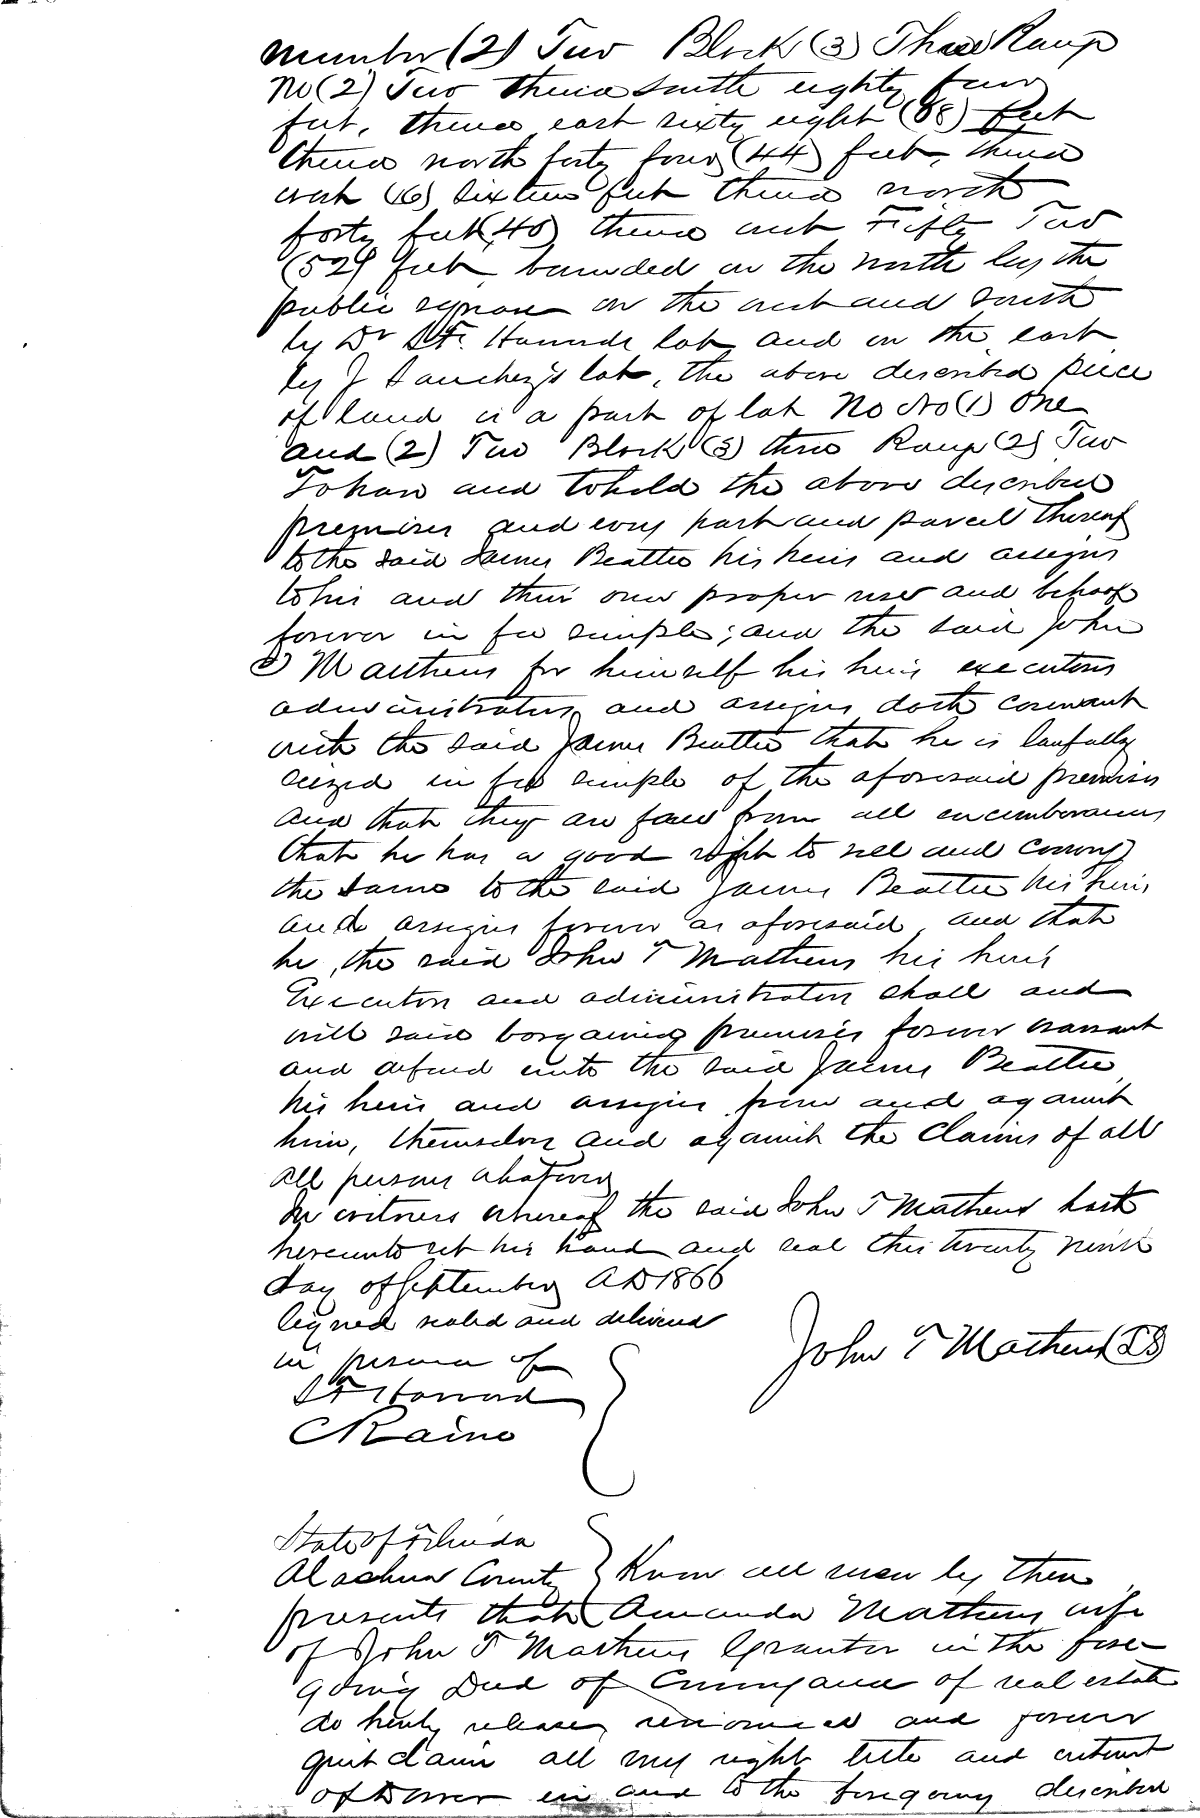 number (2) Two Block (3) Three Range
No (2) Two thence South eighty four
feet, thence east sixty eight (68) feet
thence north forty four (44) feet, thence
west (16) sixteen feet thence north
forty feet (40) thence west Fifty Two
(52) feet, bounded on the north by the
public square on the west and south
by Dr S F. Hawards lot and on the east
by J Sanchez's lot, the above described piece
of land is a part of lot No No (1) One
and (2) Two Block (3) three Range (2) Two
To have and to hold the above described
premises and every part and parcel thereof
to the said James Beattie his heirs and assigns
to his and their own proper use and behoof
forever in fee simple; and the said John
T Matthews for himself his heirs executors
administrators and assigns doth covenant
with the said James Beattie that he is lawfully
seized in fee simple of the aforesaid premises
and that they are free from all encumbrances
that he has a good right to sell and convey
the same to the said James Beattie his heirs
and assigns forever as aforesaid, and that
he, the said John T Mathews his heirs
Executors and administrators shall and
will said bargained premises forever warrant
and defend unto the said James Beattie
his heirs and assigns from and against
him, themselves and against the claims of all
all persons whatever
In witness whereof the said John T Mathews hath
hereunto set his hand and seal this twenty ninth
day of September AD 1866
Signed sealed and delivered
in presence of
John T Mathews (LS)
S F Haward
C Raino
State of Florida
Alachua County } Know all men by these
presents that Amanda Mathews wife
of John T Mathews Grantor in the fore
going Deed of Conveyance of real estate
do hereby release, renounced and forever
quit claim all my right title and interest
of Dower in and to the foregoing described